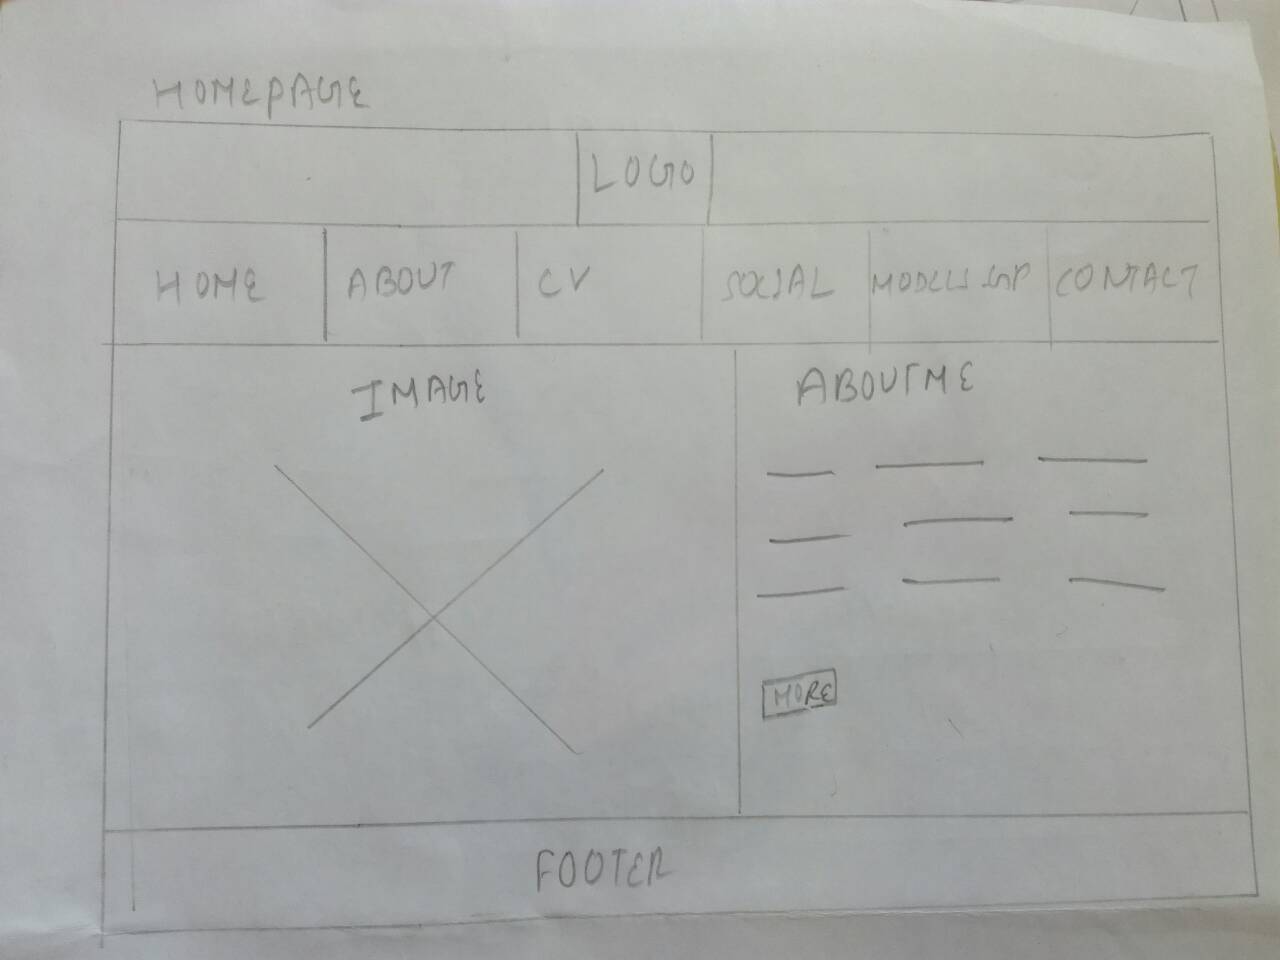 HOMEPAGE
LOGO
HOME ABOUT CV SOCIAL CONTACT
IMAGE ABOUT ME
MORE
FOOTER